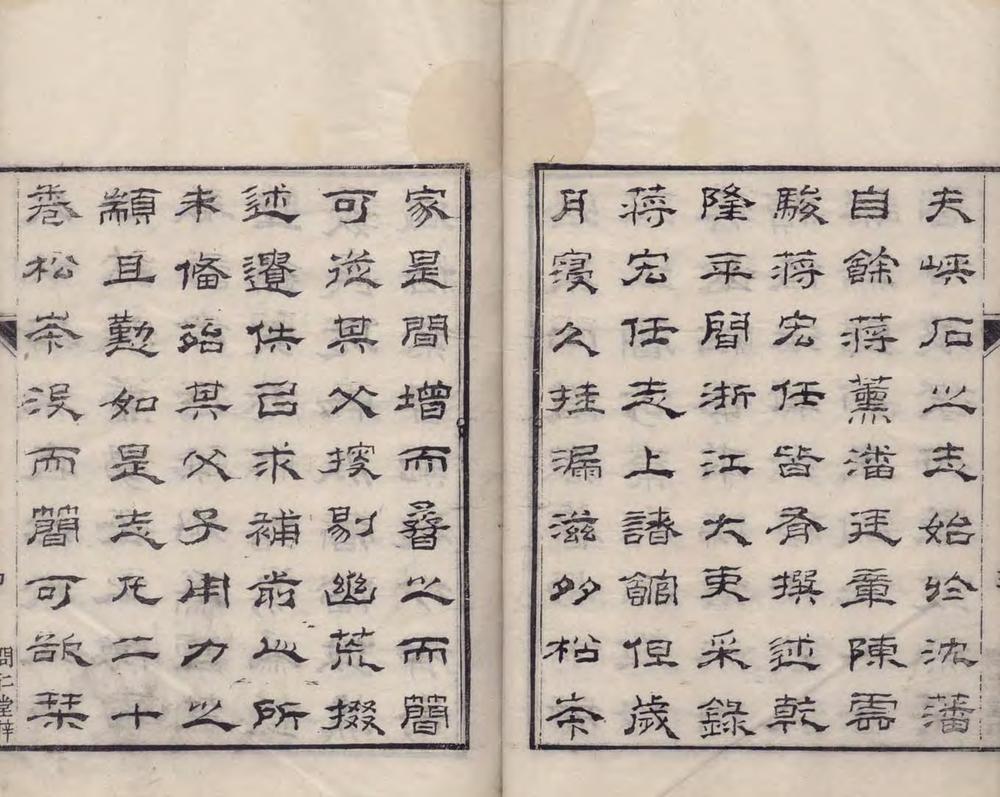 夫峽石之志始於沈藩
自餘蔣薰潘廷章陳雲
駿蔣宏任皆有撰述乾
隆平間浙江大吏采錄
蔣宏任志上諸館但歲
月寖久挂漏滋多松寮
家是間增而彙之而簡
可從其父搜剔幽荒掇
述遺佚己求補前人所
未備殆其父子用力之
顓且勤如是志凡二十
卷松寮沒而簡可欲栞